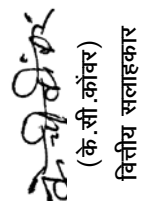 (के.सी.कोंवर)
वित्तीय सलाहकार